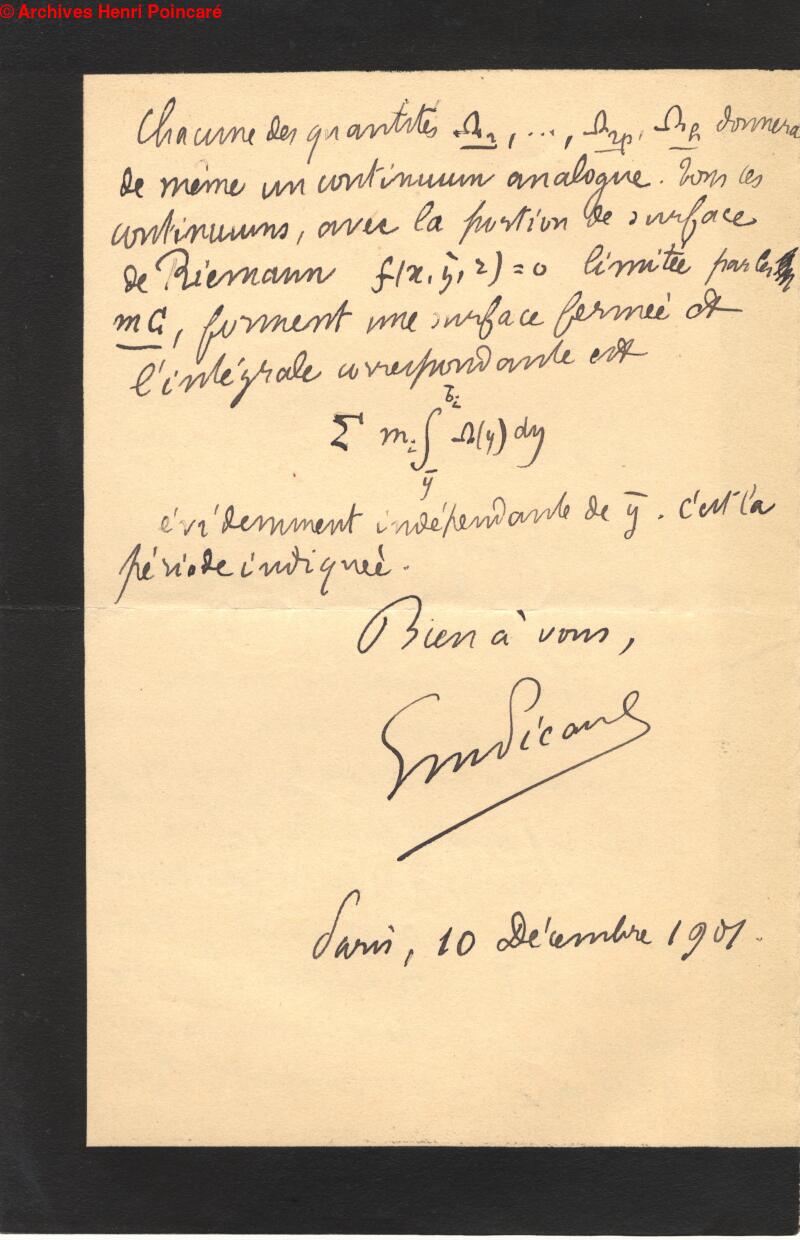 © Archives Henri Poincaré
Chacune des quantités Ω₂, ..., Ω₂ₚ, Ωₕ donnera
de même un continuum analogue. Tous ces
continuums, avec la portion de surface
de Riemann f(x, ȳ, z) = 0 limitée par les
mC, forment une surface fermée et
l'intégrale correspondante est
Σ mᵢ ∫ Ω(y) dy
ȳ
évidemment indépendante de ȳ. C'est la
période indiquée.
Bien à vous,
Em Picard
Paris, 10 Décembre 1901.